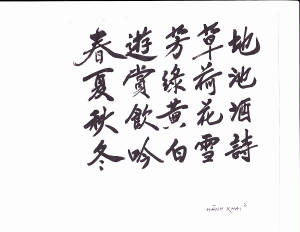 春遊芳草地
夏賞綠荷池
秋飲黃花酒
冬吟白雪詩
HÀNH